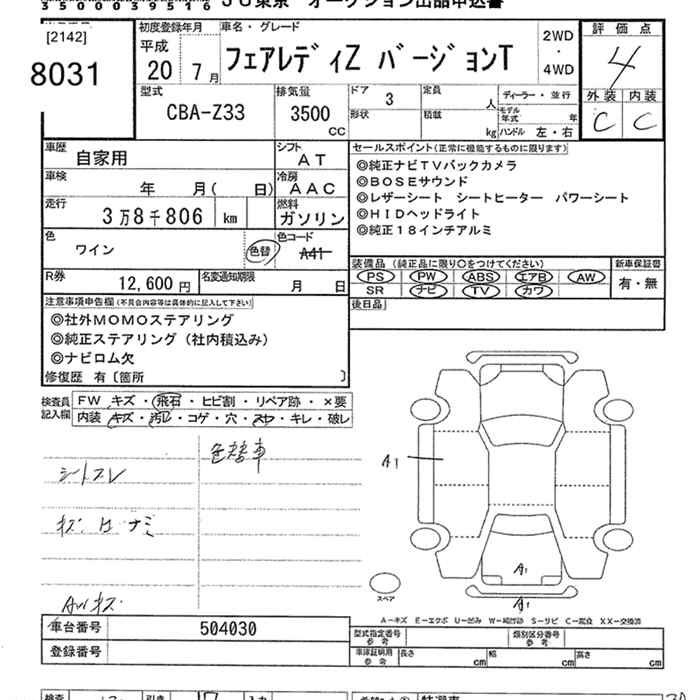 390003951 6 JU東京 オークション出品申込書
[2142]
8031
初度登録年月
平成
20 7月
車名・グレード
フェアレディZ バージョンT
2WD
・
4WD
評価点
4
外装 内装
C C
型式
CBA-Z33
排気量
3500
CC
ドア
3
定員
人
形状
積載
kg
ディーラー・並行
モデル年式
年
ハンドル 左・右
車歴
自家用
シフト
AT
車検
年 月( 日)
冷房
AAC
走行
3万8千806 km
燃料
ガソリン
色
ワイン
色替
色コード
A41
R券
12,600円
名変通知期限
月 日
セールスポイント(正常に機能するものに限ります)
◎純正ナビTVバックカメラ
◎BOSEサウンド
◎レザーシート シートヒーター パワーシート
◎HIDヘッドライト
◎純正18インチアルミ
装備品 (純正品に限り○をつけてください)
PS PW ABS エアB AW
SR ナビ TV カワ
新車保証書
有・無
後日品
注意事項申告欄(不具合内容等は具体的に記入して下さい)
◎社外MOMOステアリング
◎純正ステアリング(社内積込み)
◎ナビロム欠
修復歴 有〔箇所 〕
検査員
記入欄
FW キズ・飛石・ヒビ割・リペア跡・×要
内装・キズ・汚レ・コゲ・穴・スレ・キレ・破レ
色替車
シートスレ
AWキズ
A1
A1
A1
スペア
A-キズ E-エクボ U-凹み W-補修跡 S-サビ C-腐食 XX-交換済
車台番号
504030
登録番号
型式指定番号
参考
類別区分番号
参考
車庫証明用
参考
長さ cm 幅 cm 高さ cm